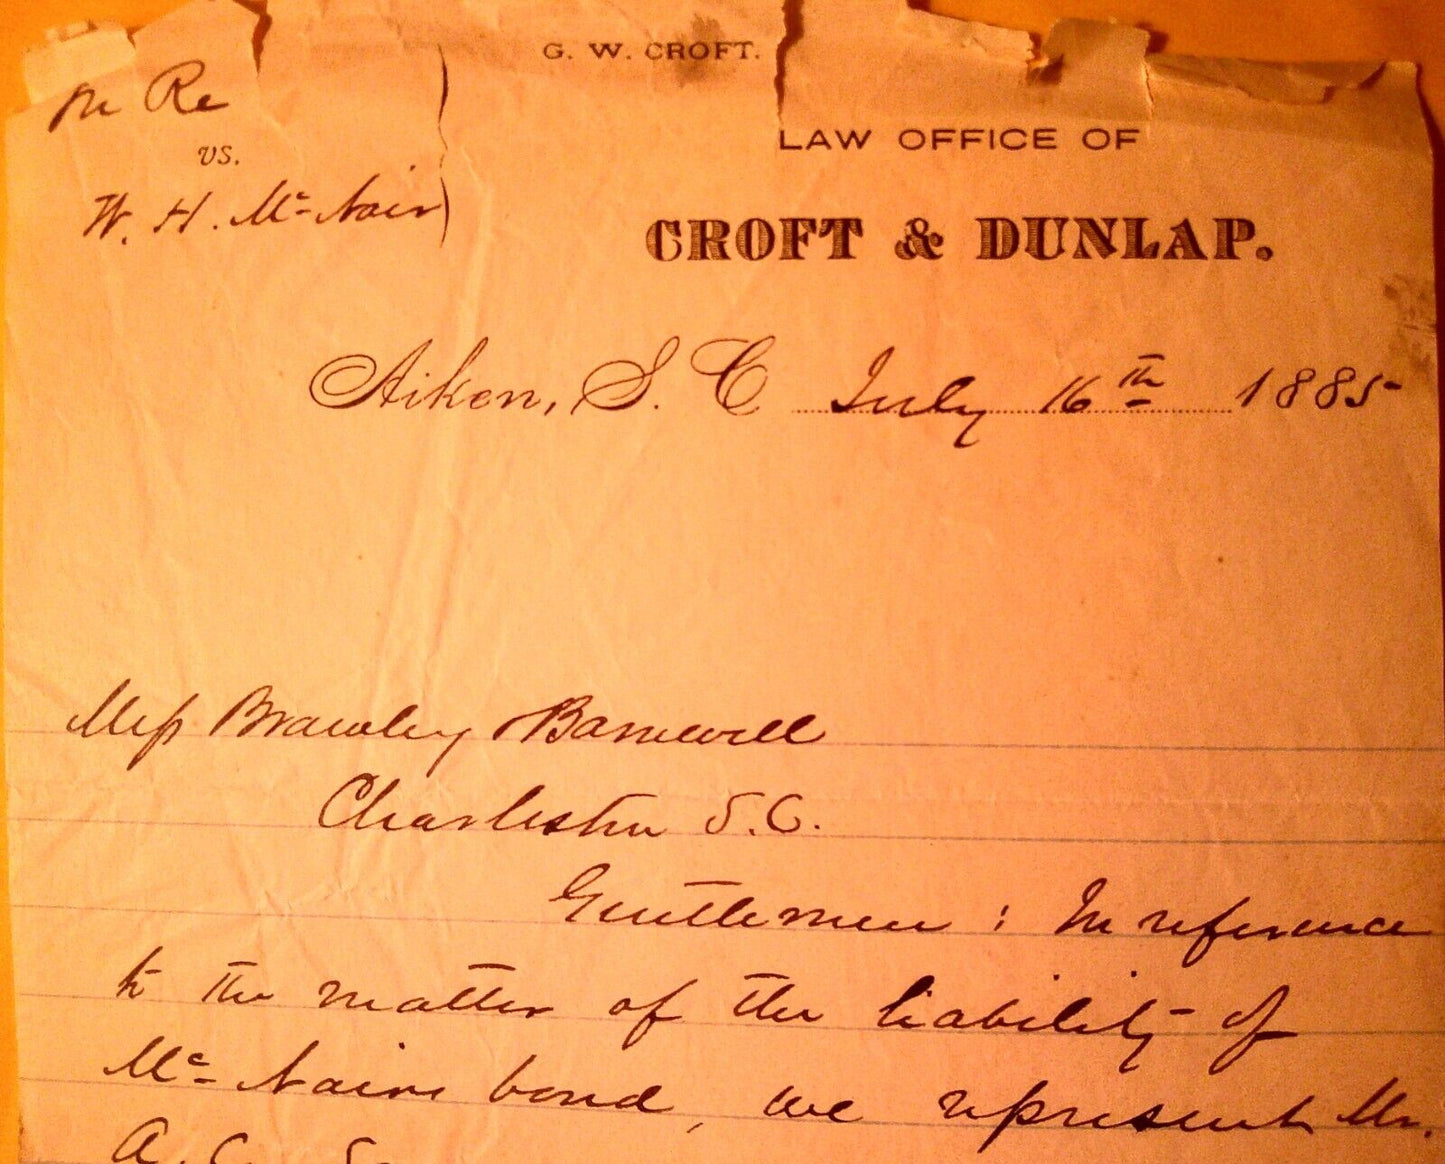 G. W. CROFT.
In Re
vs.
W. H. McNair
LAW OFFICE OF
CROFT & DUNLAP.
Aiken, S. C. July 16th 1885
Mess Brawley Barnwell
Charleston S.C.
Gentlemen : In reference
to the matter of the liability of
McNairs bond, we represent Mr.
A. C.